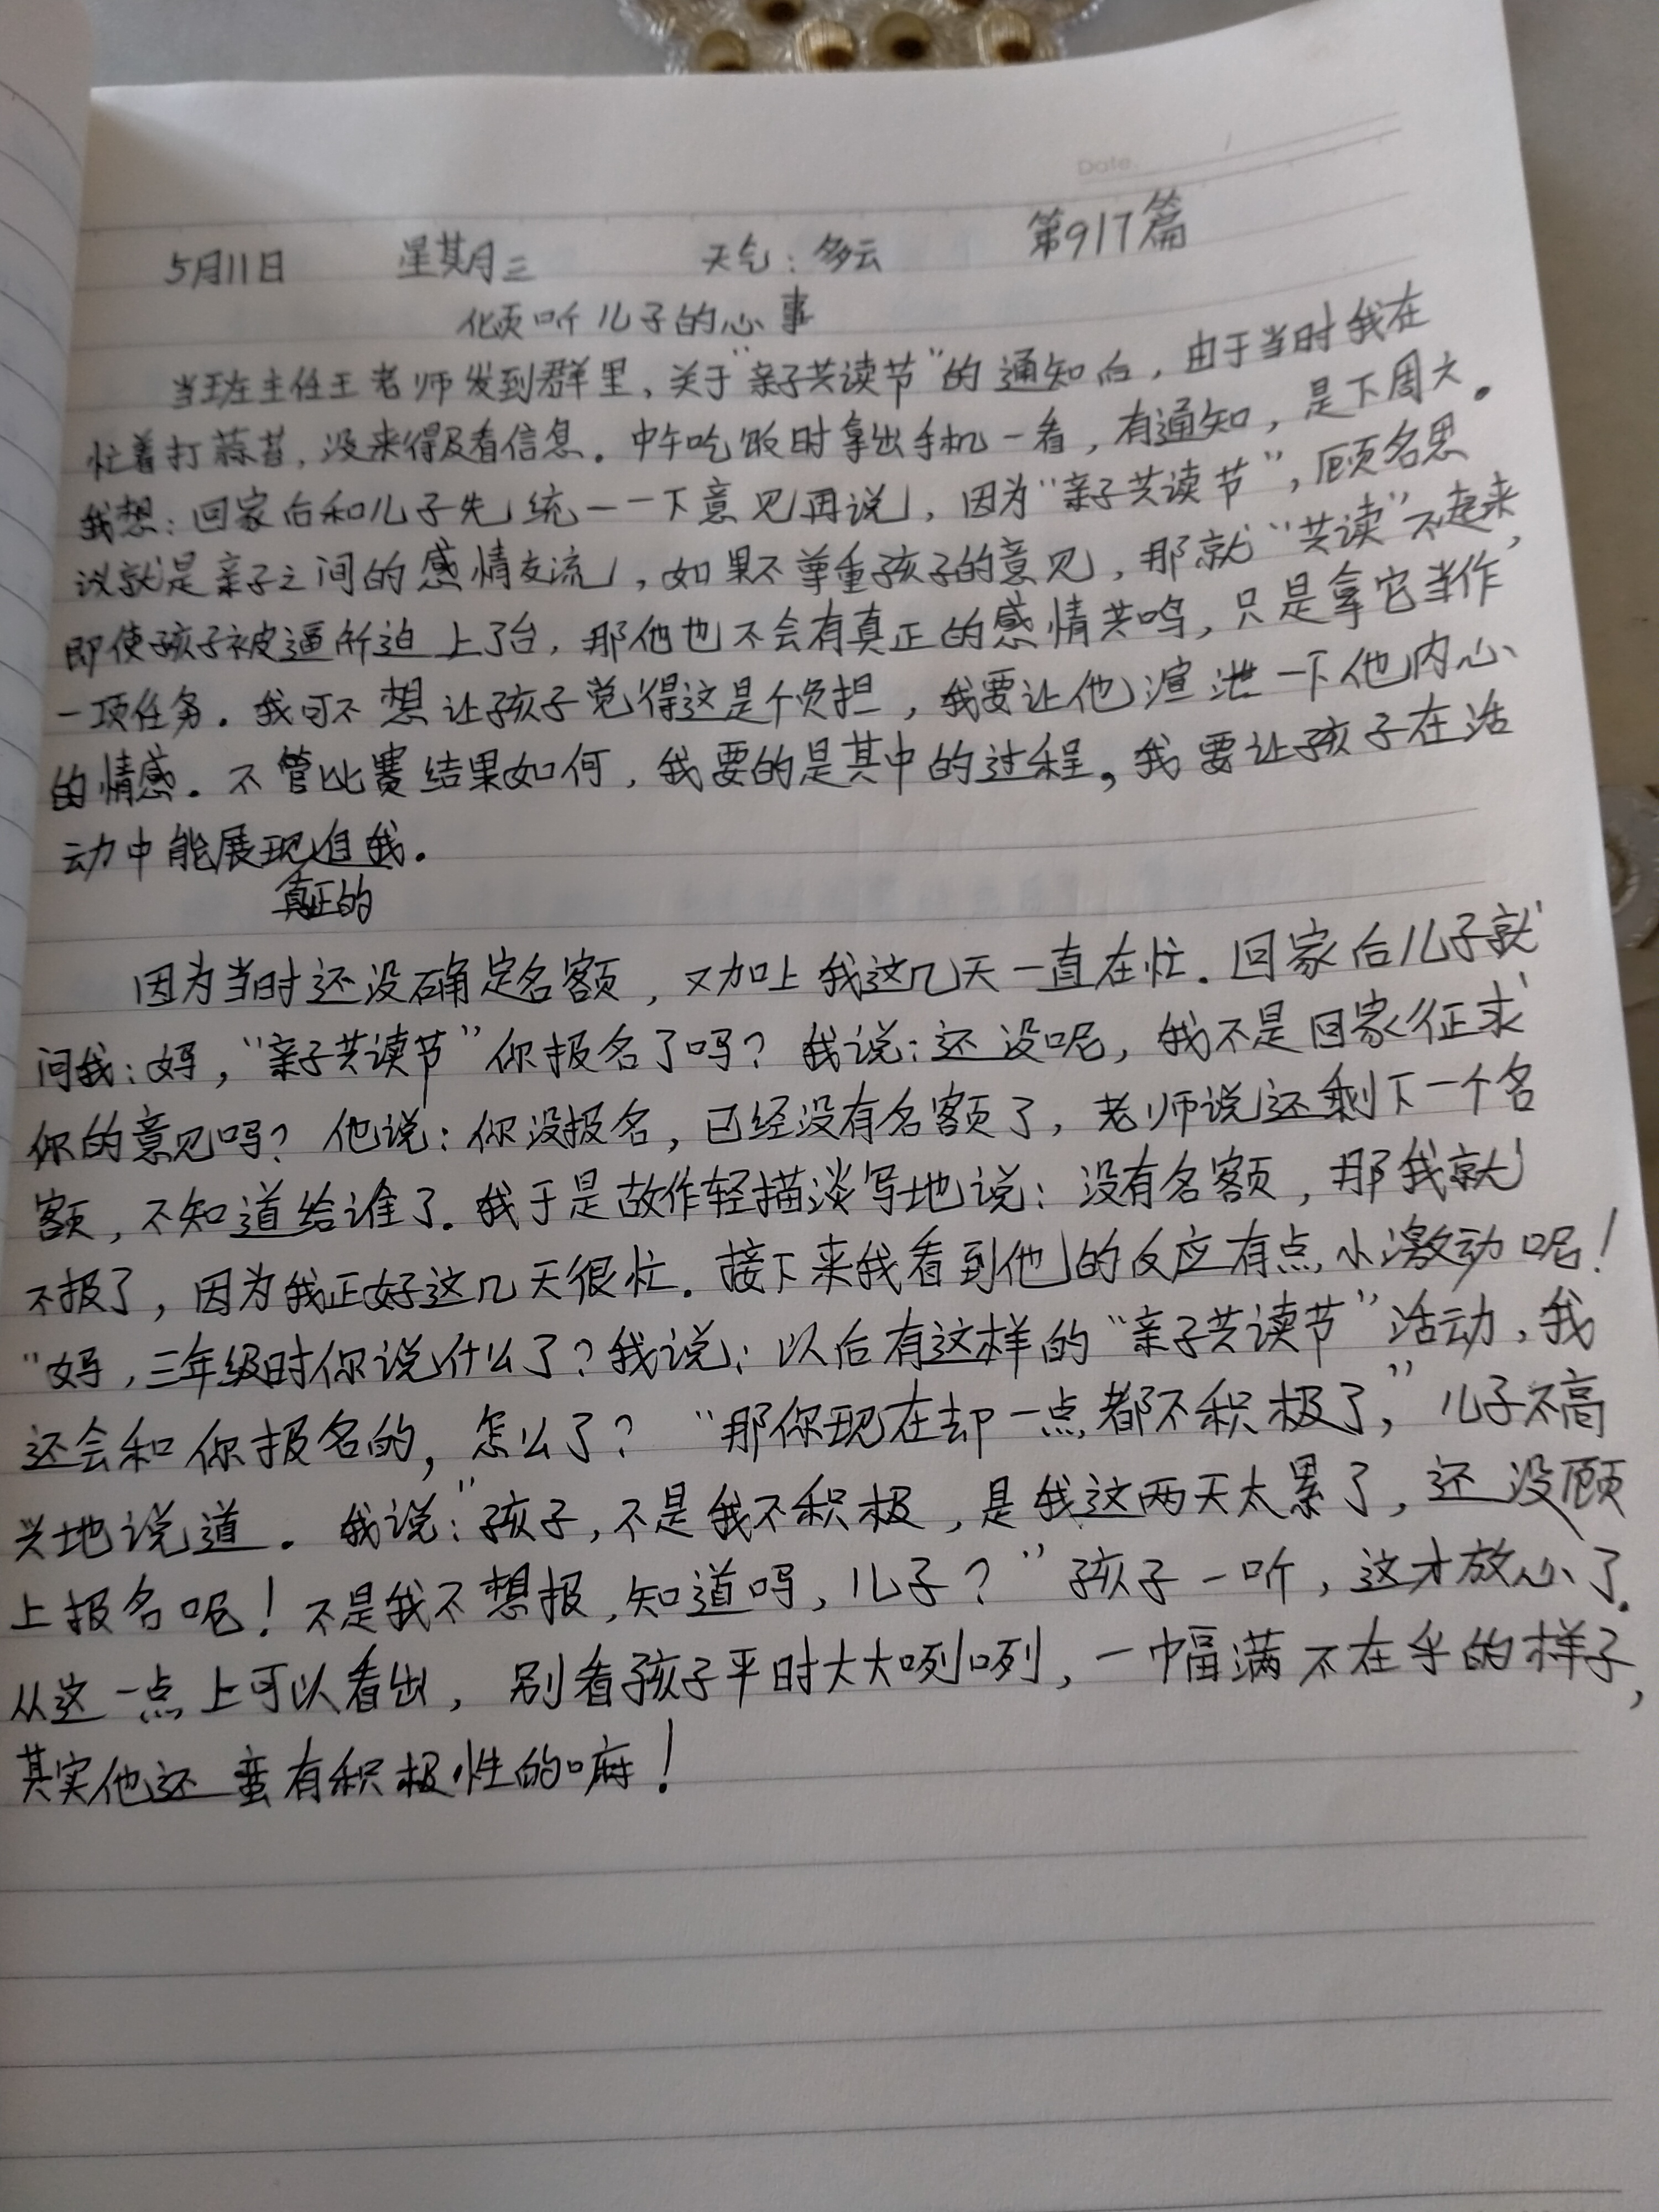 Date.
5月11日 星期三 天气：多云 第917篇
倾听儿子的心事
当班主任王老师发到群里，关于“亲子共读节”的通知后，由于当时我在
忙着打蒜苔，没来得及看信息。中午吃饭时拿出手机一看，有通知，是下周六。
我想：回家后和儿子先统一一下意见再说，因为“亲子共读节”，顾名思
议就是亲子之间的感情交流，如果不尊重孩子的意见，那就“共读”不起来，
即使孩子被逼所迫上了台，那他也不会有真正的感情共鸣，只是拿它当作
一项任务。我可不想让孩子觉得这是个负担，我要让他渲泄一下他内心
的情感。不管比赛结果如何，我要的是其中的过程。我要让孩子在活
动中能展现自我。
真正的
因为当时还没确定名额，又加上我这几天一直在忙.回家后儿子就
问我：妈，“亲子共读节”你报名了吗？我说：还没呢，我不是回家征求
你的意见吗？他说：你没报名，已经没有名额了，老师说还剩下一个名
额，不知道给谁了.我于是故作轻描淡写地说：没有名额，那我就
不报了，因为我正好这几天很忙.接下来我看到他的反应有点小激动呢！
“妈，三年级时你说什么了？我说：以后有这样的“亲子共读节”活动，我
还会和你报名的，怎么了？“那你现在却一点都不积极了，”儿子不高
兴地说道。我说：“孩子，不是我不积极，是我这两天太累了，还没顾
上报名呢！不是我不想报，知道吗，儿子？”孩子一听，这才放心了.
从这一点上可以看出，别看孩子平时大大咧咧，一幅满不在乎的样子，
其实他还蛮有积极性的嘛！